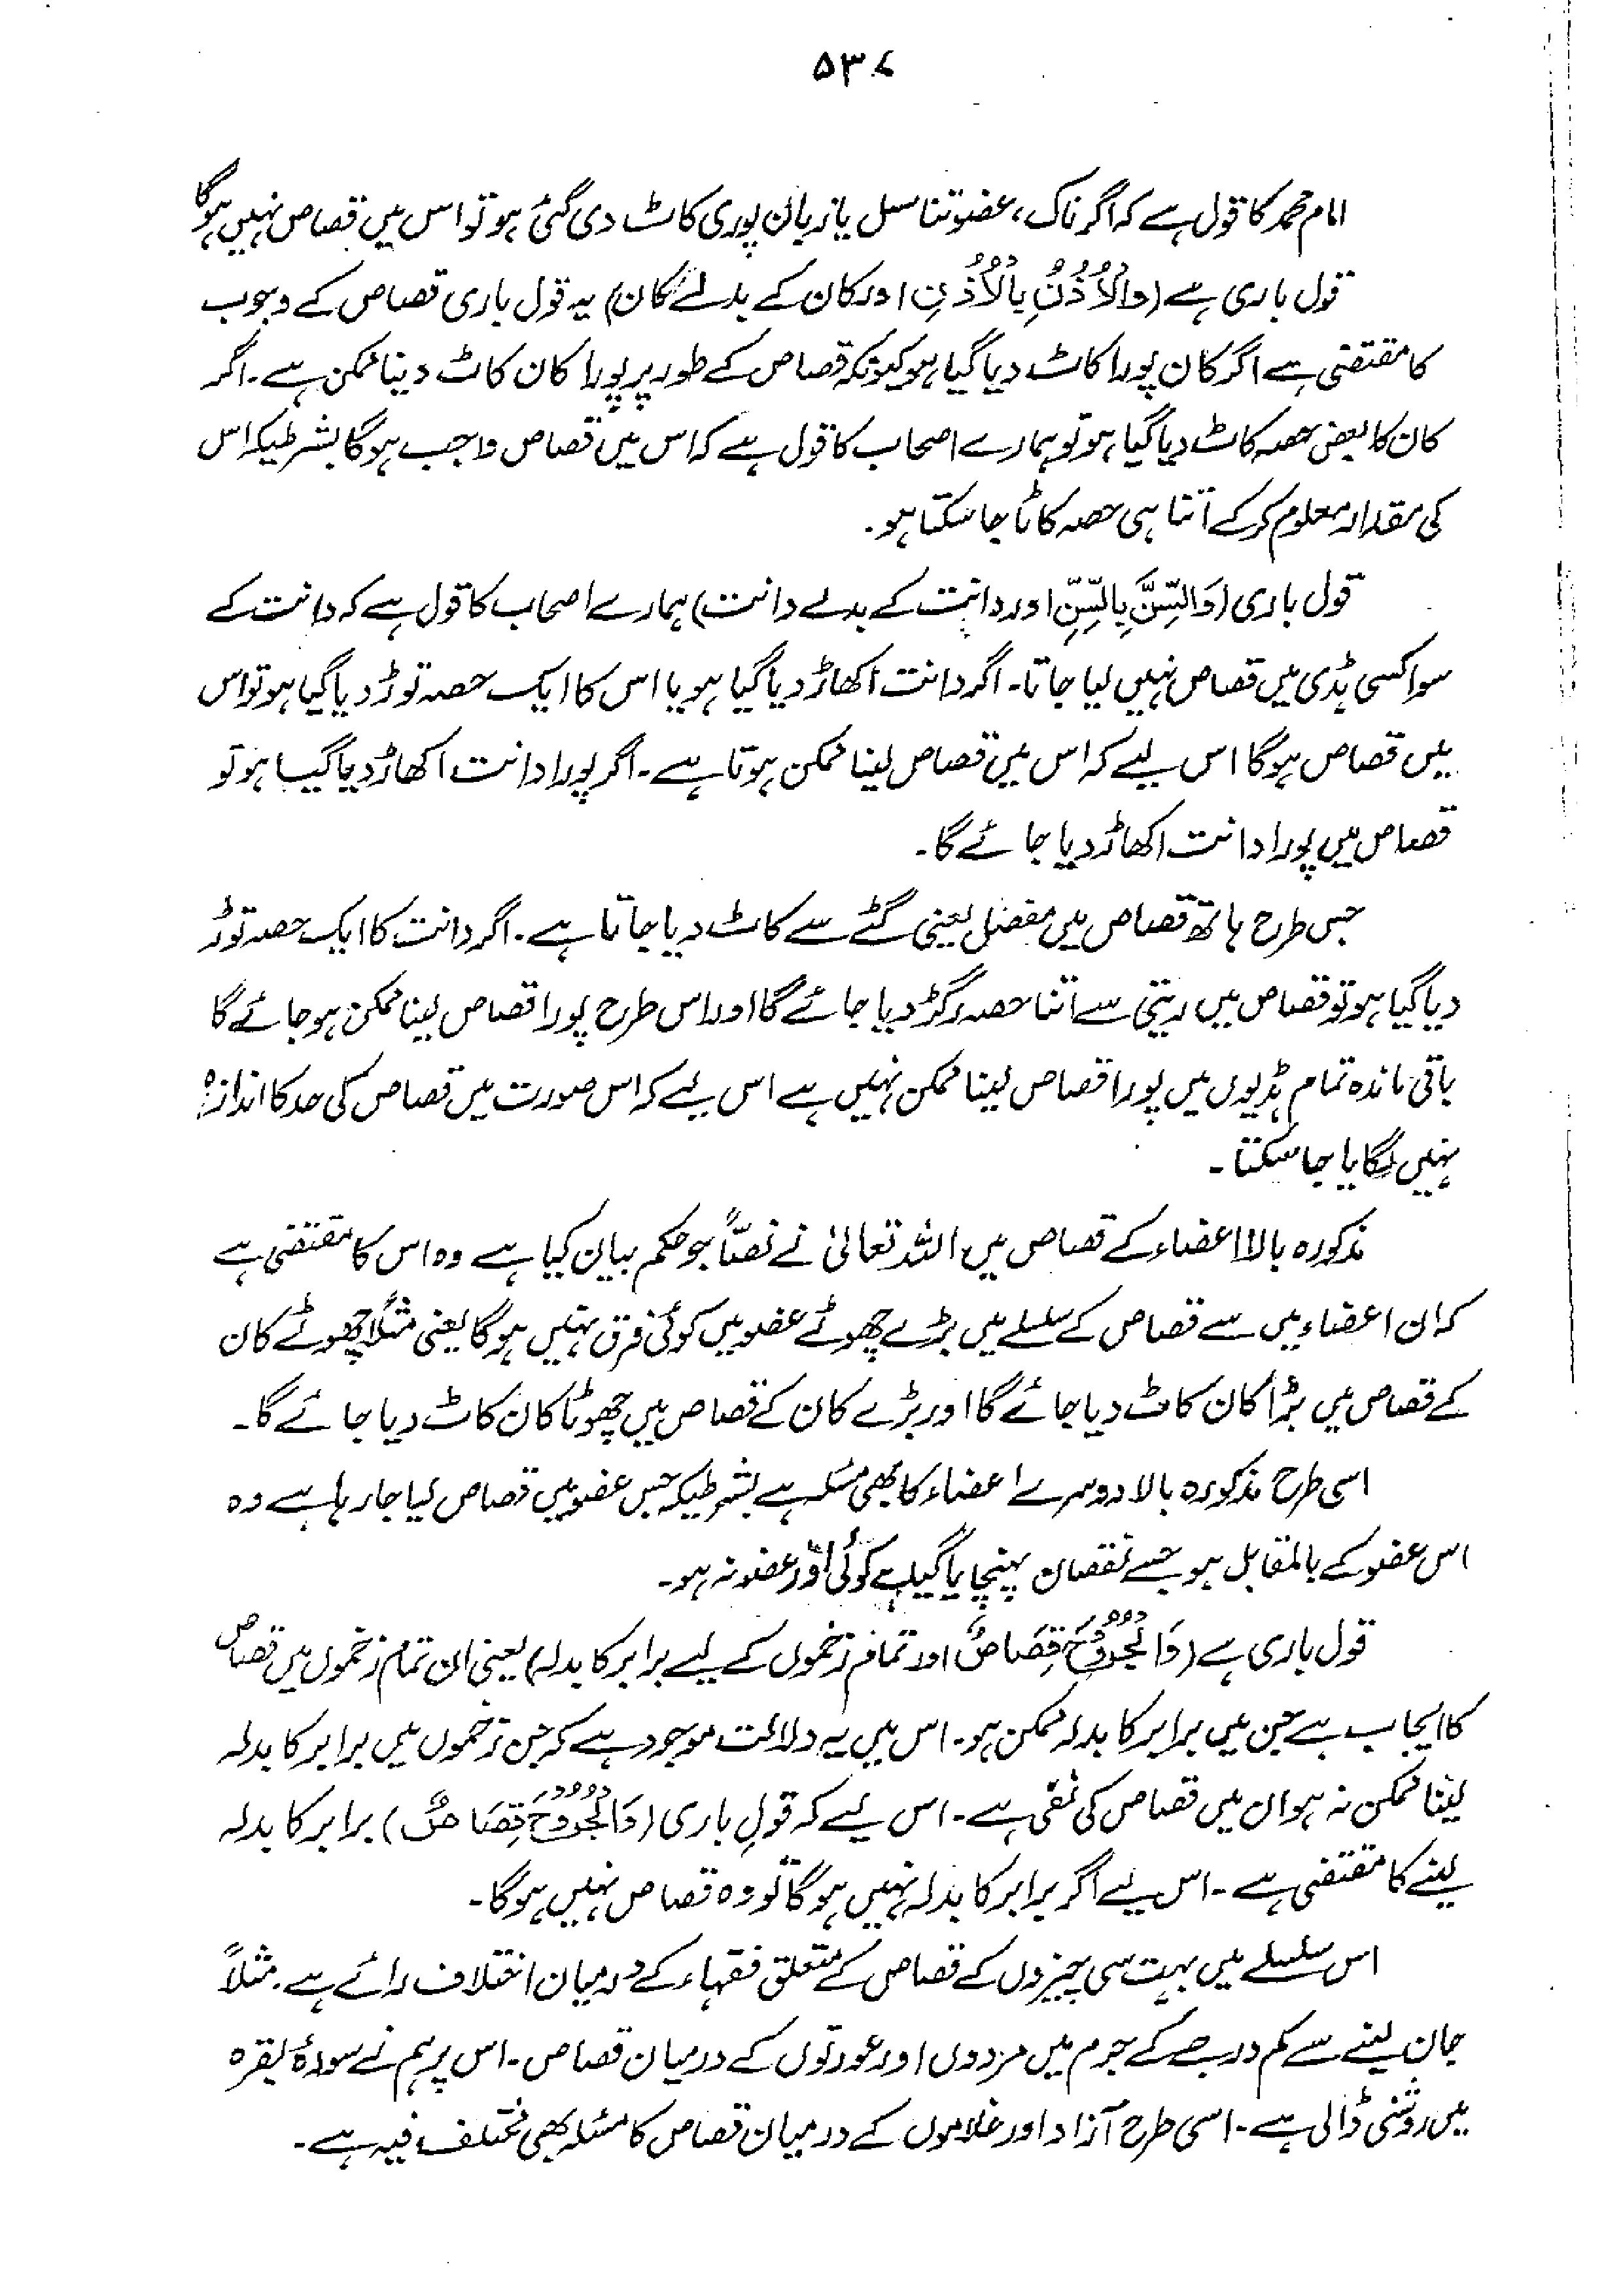 ۵۳۷
امام محمد کا قول ہے کہ اگر ناک، عضو تناسل یا زبان پوری کاٹ دی گئی ہو تو اس میں قصاص نہیں ہوگا
قول باری ہے (وَالْاُذُنَ بِالْاُذُنِ اور کان کے بدلے کان) یہ قول باری قصاص کے وجوب
کا مقتضی ہے اگر کان پورا کاٹ دیا گیا ہو کیونکہ قصاص کے طور پر پورا کان کاٹ دینا ممکن ہے۔ اگر
کان کا بعض حصہ کاٹ دیا گیا ہو تو ہمارے اصحاب کا قول ہے کہ اس میں قصاص واجب ہوگا بشرطیکہ اس
کی مقدار معلوم کر کے اتنا ہی حصہ کاٹا جا سکتا ہو۔
قول باری (وَالسِّنَّ بِالسِّنِّ اور دانت کے بدلے دانت) ہمارے اصحاب کا قول ہے کہ دانت کے
سوا کسی ہڈی میں قصاص نہیں لیا جاتا۔ اگر دانت اکھاڑ دیا گیا ہو یا اس کا ایک حصہ توڑ دیا گیا ہو تو اس
میں قصاص ہوگا اس لیے کہ اس میں قصاص لینا ممکن ہوتا ہے۔ اگر پورا دانت اکھاڑ دیا گیا ہو تو
قصاص میں پورا دانت اکھاڑ دیا جائے گا۔
جس طرح ہاتھ قصاص میں مفصل یعنی گٹے سے کاٹ دیا جاتا ہے۔ اگر دانت کا ایک حصہ توڑ
دیا گیا ہو تو قصاص میں ریتی سے اتنا حصہ رگڑ دیا جائے گا اور اس طرح پورا قصاص لینا ممکن ہو جائے گا
باقی ماندہ تمام ہڈیوں میں پورا قصاص لینا ممکن نہیں ہے اس لیے کہ اس صورت میں قصاص کی حد کا اندازہ
نہیں لگایا جا سکتا۔
مذکورہ بالا اعضاء کے قصاص میں اللہ تعالیٰ نے نصّاً جو حکم بیان کیا ہے وہ اس کا مقتضی ہے
کہ ان اعضاء میں سے قصاص کے سلسلے میں بڑے چھوٹے عضو میں کوئی فرق نہیں ہوگا یعنی مثلاً چھوٹے کان
کے قصاص میں بڑا کان کاٹ دیا جائے گا اور بڑے کان کے قصاص میں چھوٹا کان کاٹ دیا جائے گا۔
اسی طرح مذکورہ بالا دوسرے اعضاء کا بھی مسئلہ ہے بشرطیکہ جس عضو میں قصاص لیا جا رہا ہے وہ
اس عضو کے بالمقابل ہو جسے نقصان پہنچایا گیا ہے کوئی اور عضو نہ ہو۔
قول باری ہے (وَالْجُرُوْحَ قِصَاصٌ اور تمام زخموں کے لیے برابر کا بدلہ) یعنی ان تمام زخموں میں قصاص
کا ایجاب ہے جن میں برابر کا بدلہ ممکن ہو۔ اس میں یہ دلالت موجود ہے کہ جن زخموں میں برابر کا بدلہ
لینا ممکن نہ ہو ان میں قصاص کی نفی ہے۔ اس لیے کہ قولِ باری (وَالْجُرُوْحَ قِصَاصٌ) برابر کا بدلہ
لینے کا مقتضی ہے۔ اس لیے اگر برابر کا بدلہ نہیں ہوگا تو وہ قصاص نہیں ہوگا۔
اس سلسلے میں بہت سی چیزوں کے قصاص کے متعلق فقہاء کے درمیان اختلاف رائے ہے۔ مثلاً
جان لینے سے کم درجے کے جرم میں مردوں اور عورتوں کے درمیان قصاص۔ اس پر ہم نے سورۂ بقرہ
میں روشنی ڈالی ہے۔ اسی طرح آزاد اور غلاموں کے درمیان قصاص کا مسئلہ بھی مختلف فیہ ہے۔